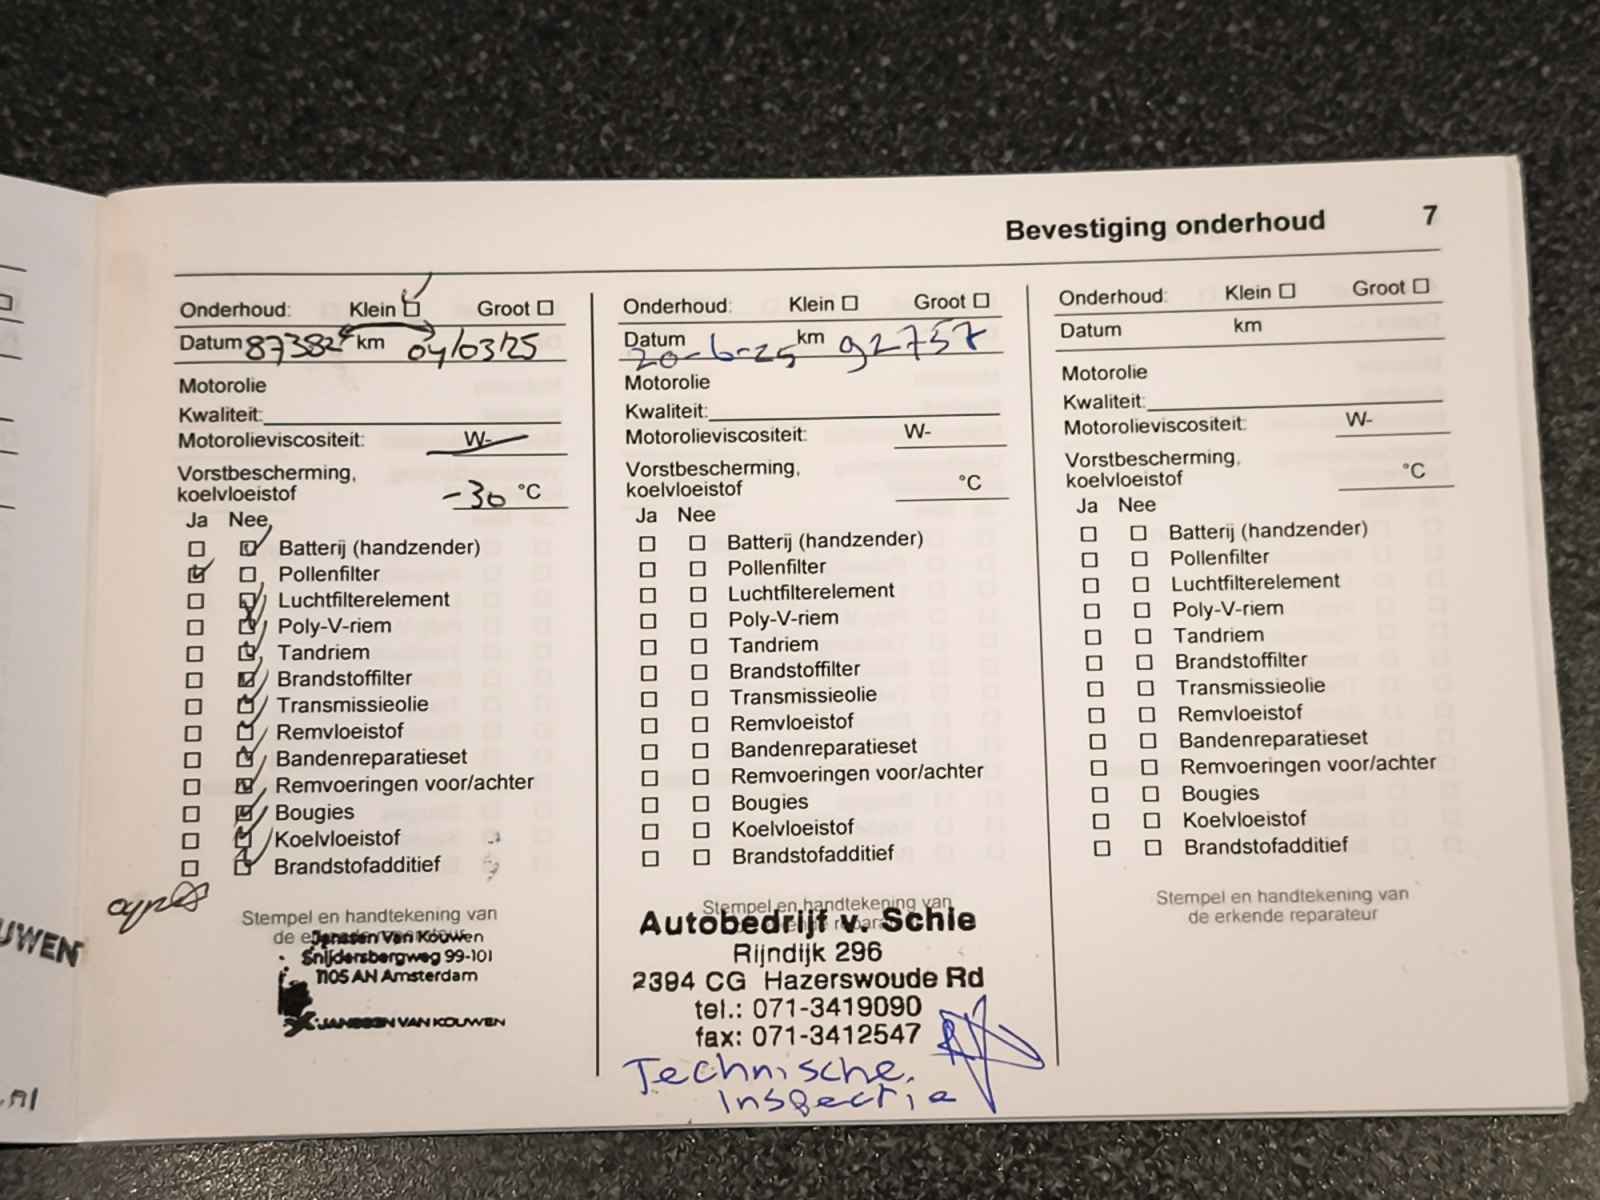 Bevestiging onderhoud 7
Onderhoud: Klein Groot
Datum 87382 km 04/03/25
Motorolie
Kwaliteit:
Motorolieviscositeit: W-
Vorstbescherming,
koelvloeistof -30 °C
Ja Nee
Batterij (handzender)
Pollenfilter
Luchtfilterelement
Poly-V-riem
Tandriem
Brandstoffilter
Transmissieolie
Remvloeistof
Bandenreparatieset
Remvoeringen voor/achter
Bougies
Koelvloeistof
Brandstofadditief
Stempel en handtekening van
de erkende reparateur
Janssen Van Kouwen
Snijdersbergweg 99-101
1105 AN Amsterdam
JANSSEN VAN KOUWEN
Onderhoud: Klein Groot
Datum 20-6-25 km 92757
Motorolie
Kwaliteit:
Motorolieviscositeit: W-
Vorstbescherming,
koelvloeistof °C
Ja Nee
Batterij (handzender)
Pollenfilter
Luchtfilterelement
Poly-V-riem
Tandriem
Brandstoffilter
Transmissieolie
Remvloeistof
Bandenreparatieset
Remvoeringen voor/achter
Bougies
Koelvloeistof
Brandstofadditief
Stempel en handtekening van
de erkende reparateur
Autobedrijf v. Schie
Rijndijk 296
2394 CG Hazerswoude Rd
tel.: 071-3419090
fax: 071-3412547
Technische
Inspectie
Onderhoud: Klein Groot
Datum km
Motorolie
Kwaliteit:
Motorolieviscositeit: W-
Vorstbescherming,
koelvloeistof °C
Ja Nee
Batterij (handzender)
Pollenfilter
Luchtfilterelement
Poly-V-riem
Tandriem
Brandstoffilter
Transmissieolie
Remvloeistof
Bandenreparatieset
Remvoeringen voor/achter
Bougies
Koelvloeistof
Brandstofadditief
Stempel en handtekening van
de erkende reparateur
UWEN
.nl